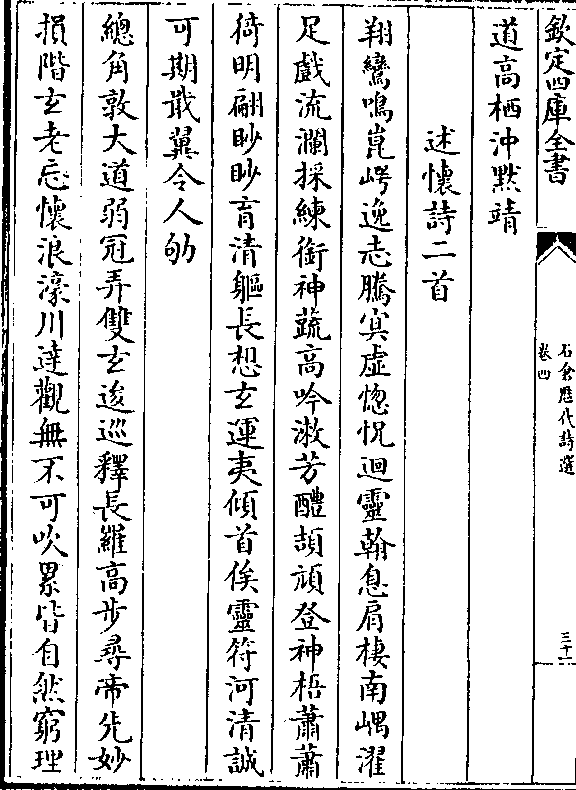 欽定四庫全書
石倉歷代詩選
卷四
三十
道高栖沖默靖
述懷詩二首
翔鸞鳴崑崿逸志騰冥虛惚怳迴靈翰息肩棲南嵎濯
足戲流瀾採練銜神蔬高吟漱芳醴頡頏登神梧蕭蕭
猗明翩眇眇育清軀長想玄運夷傾首俟靈符河清誠
可期戢翼令人劬
總角敦大道弱冠弄雙玄逡巡釋長羅高步尋帝先妙
損階玄老忘懷浪濠川達觀無不可吹累皆自然窮理